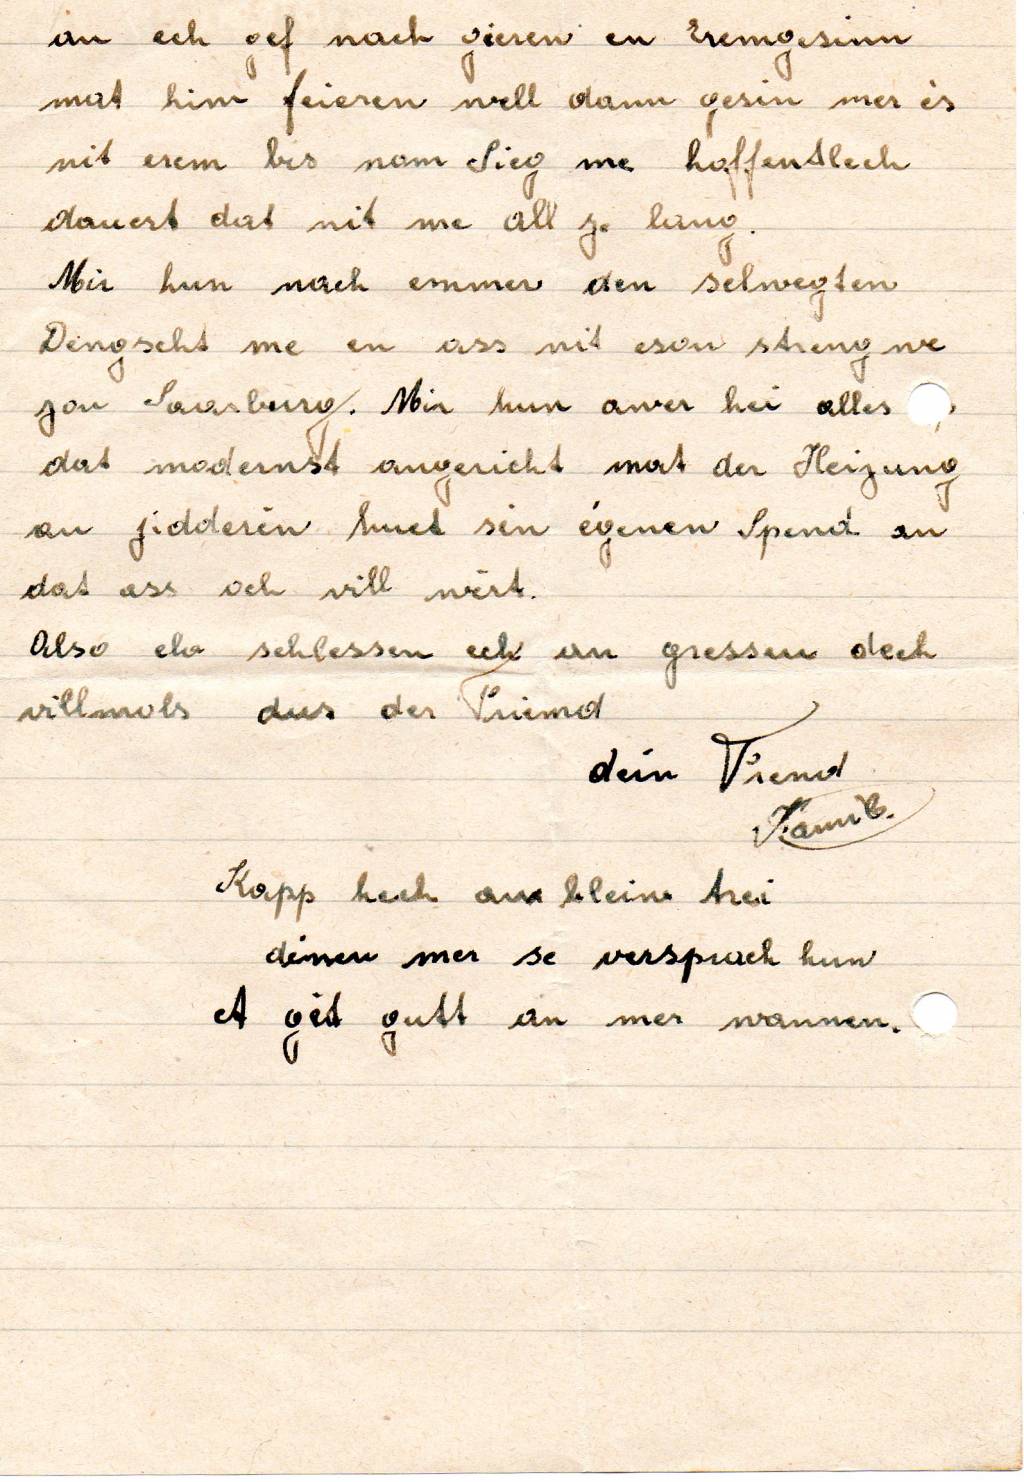 an ech gef nach gieren en Eremgesinn
mat him feieren well dann gesin mer és
nit erem bis nom Sieg me hoffentlech
dauert dat nit me all ze lang.
Mir hun nach emmer den selwegten
Dengscht me en ass nit esou streng we
zou Saarburg. Mir hun awer hei alles
dat modernst angericht mat der Heizung
an jidderén huet sin égenen Spend an
dat ass och vill wért.
Also elo schlessen ech an gressen dech
villmols dus der Friemd
dein Frend
Kapp hech an kleiw trei
dénen mer se versprach hun
et gét gutt an mer wannen.